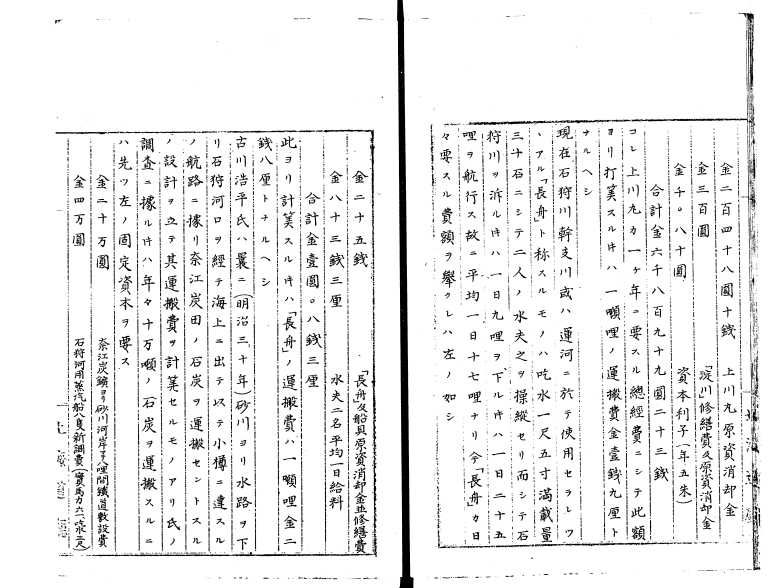 金二百四十八圓十錢　上川丸原資消却金
金三百圓　「淀川」修繕費及原資消却金
金千〇八十圓　資本利子(年五朱)
合計金六千八百九十九圓二十三錢
コレ上川丸カ一ケ年ニ要スル總經費ニシテ此額
ヨリ打算スル片ハ一噸哩ノ運搬費金壹錢九厘ト
ナルヘシ
現在石狩川幹支川或ハ運河ニ於テ使用セラレツ
、アル「長舟」ト称スルモノハ吃水一尺五寸滿載量
三十石ニシテ二人ノ水夫之ヲ操縱セリ而シテ石
狩川ヲ泝ル片ハ一日九哩ヲ下ル片ハ一日二十五
哩ヲ航行ス故ニ平均一日十七哩ナリ今「長舟」カ日
々要スル費額ヲ擧クレハ左ノ如シ
金二十五錢　「長舟及船具原資消却金並修繕費
金八十三錢三厘　水夫二名平均一日給料
合計金壹圓〇八錢三厘
此ヨリ計算スル片ハ「長舟」ノ運搬費ハ一噸哩金二
錢八厘トナルヘシ
古川浩平氏ハ曩ニ(明治三十年)砂川ヨリ水路ヲ下
リ石狩河口ヲ經テ海上ニ出テ以テ小樽ニ達スル
ノ航路ニ據リ奈江炭田ノ石炭ヲ運搬セントスル
ノ設計ヲ立テ其運搬費ヲ計算セルモノアリ氏ノ
調査ニ據ル片ハ年々十万噸ノ石炭ヲ運搬スルニ
ハ先ツ左ノ固定資本ヲ要ス
金二十万圓　奈江炭鑛ヨリ砂川河岸マテ哩間鐵道敷設費
金四万圓　石狩河用蒸汽船八隻新調費(實馬力六〇吃水二尺)